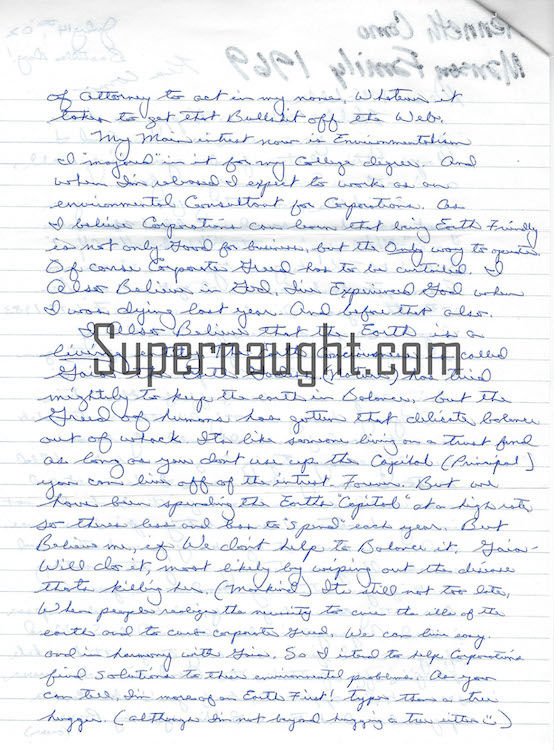 of Attorney to act in my name, Whatever it
takes to get that Bullshit off the Web.
My Main intrest now is Environmentalism
I "majored" in it for my College degree. And
when I'm released I expect to work as an
environmental Consultant for Corportions. As
I believe Corporations can learn that being Earth Friendly
is not only Good for business, but the Only way to operate
Of course Corporate Greed has to be curtailed. I
Also Believe in God, I've Experienced God when
I was dying last year. And before that also.
I Also Believe that the Earth is a
living entity. The Earth Conciousness is called
Gaia. has tried
mightily to keep the earth in Balance, but the
Greed of humans has gotten that delicate balance
out of whack. Its like someone living on a trust fund
as long as you don't use up the Capitol (Principal)
you can live off of the intrest. Forever. But we
have been spending the Earths "Capitol" at a high rate
so theres less and less to "spend" each year. But
Believe me, if We don't help to Balance it, Gaia
Will do it, most likely by wiping out the disease
thats killing her. (Mankind) Its still not too late,
When people realize the necessity to cure the ills of the
earth and to curb corporate greed. We can live easy
and in harmony with Gaia. So I intend to help Corporations
find Solutions to their enviromental problems. As you
can tell, I'm more of an Earth First! type than a tree
hugger. (although I'm not beyond hugging a tree either☺)
Supernaught.com
Kenneth Como
Manson Family 1969
July 14th, '02